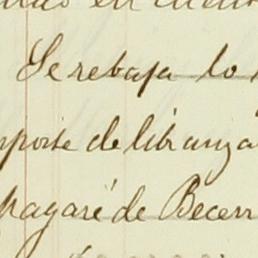 en
Se rebaja lo
mporte de libranza
pagaré de Becerr